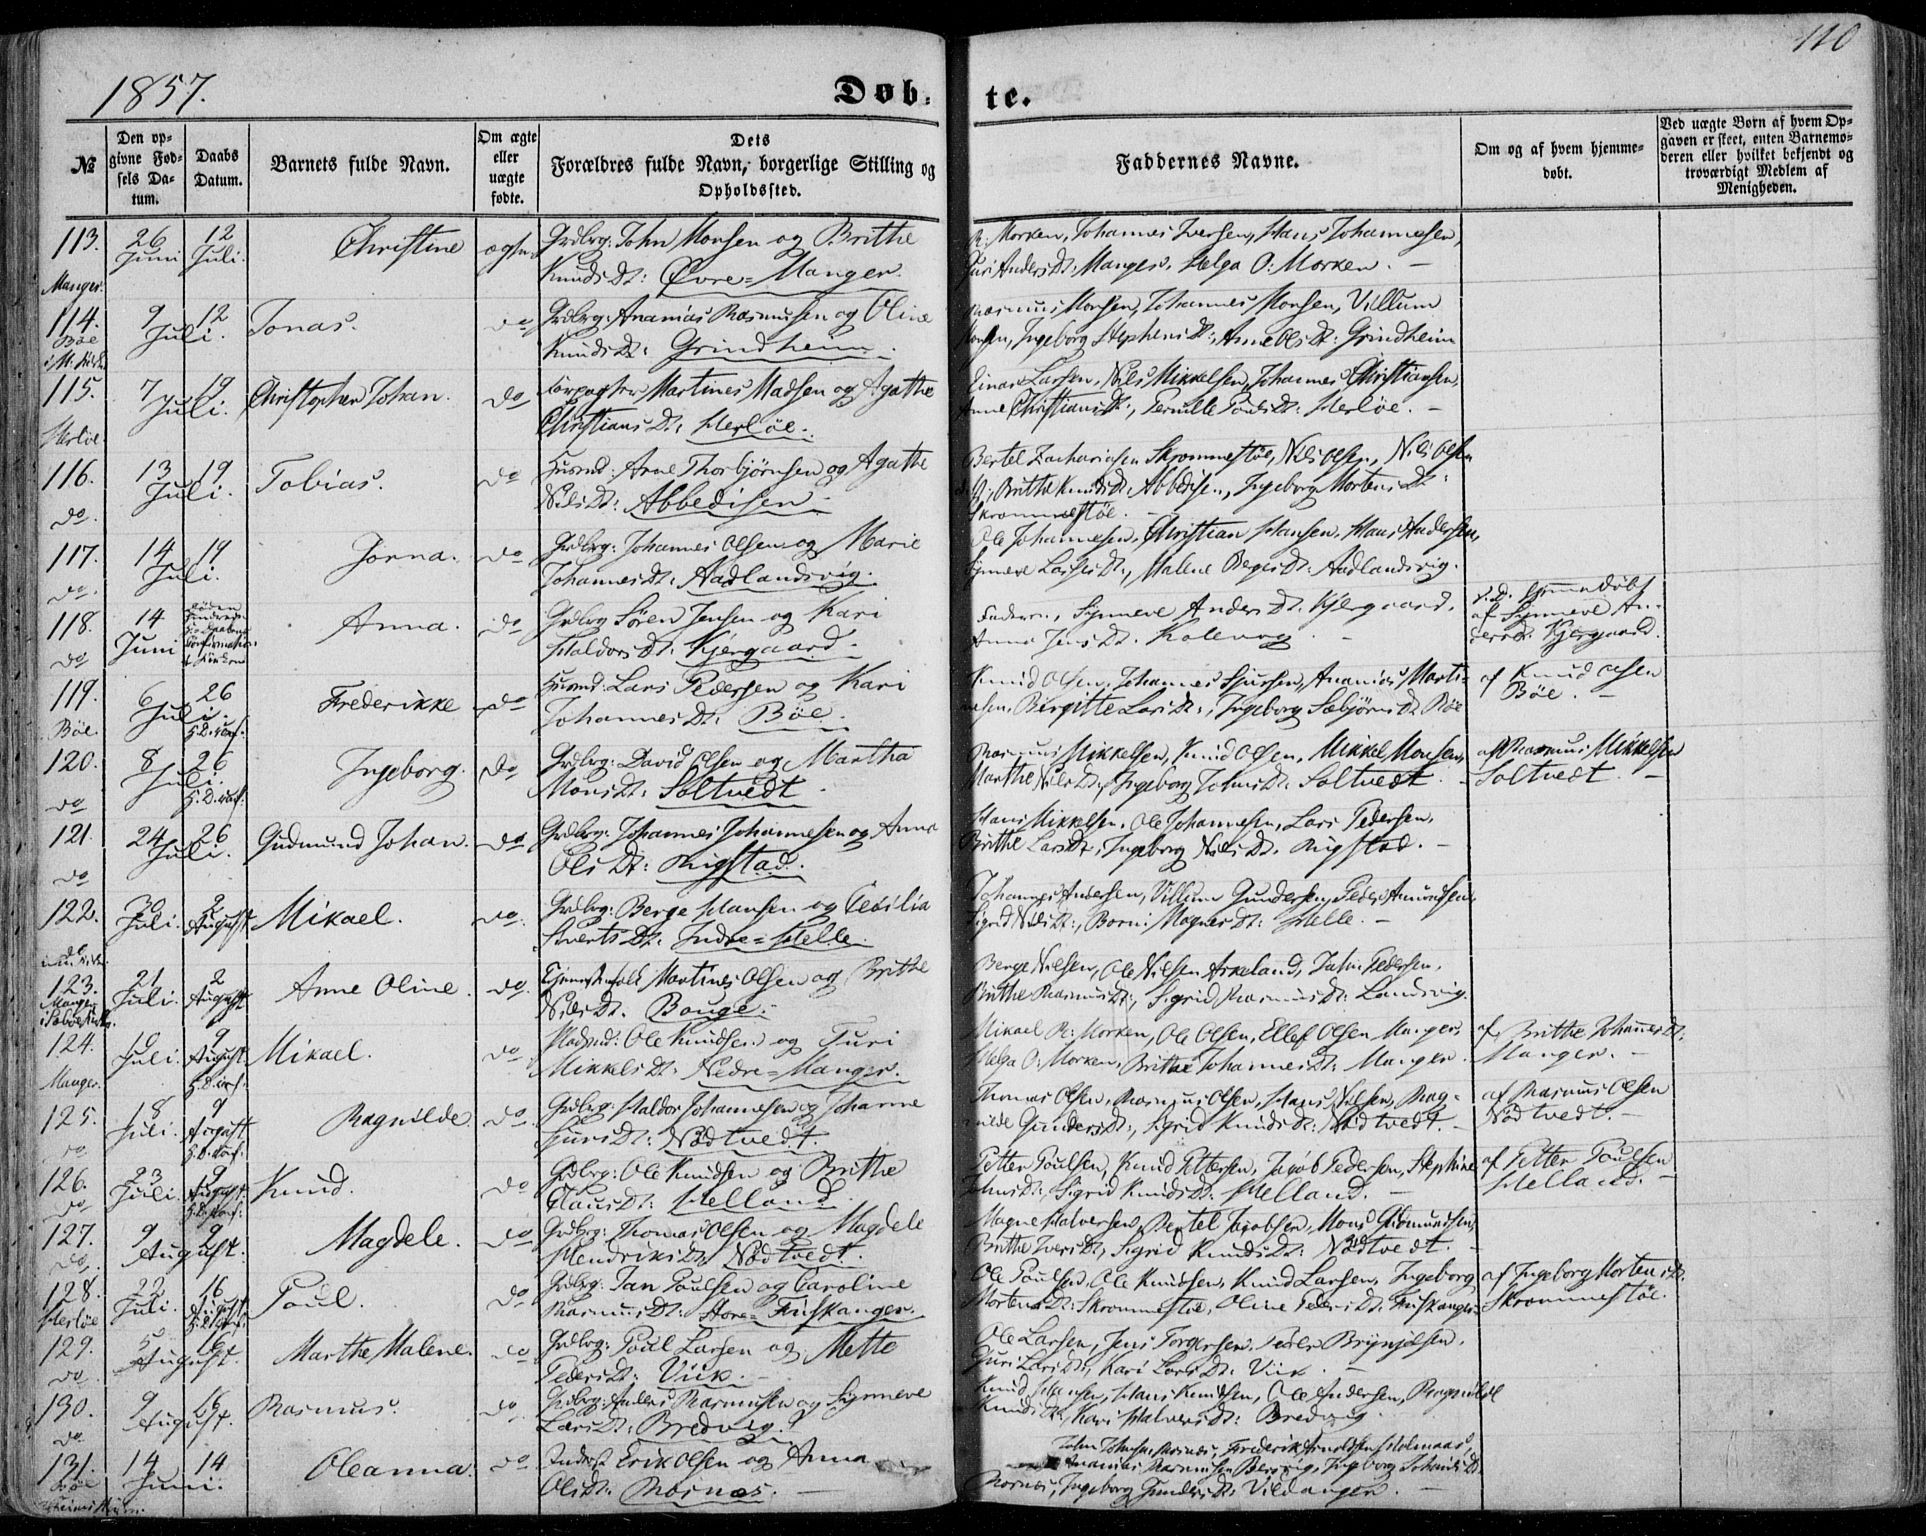 1857.
Døb-
te.
110
№
Den opgivne Fødsels Datum.
Daabs Datum.
Barnets fulde Navn.
Om ægte eller uægte fødte.
Dets Forældres fulde Navn, borgerlige Stilling og Opholdssted.
Faddernes Navne.
Om og af hvem hjemmedøbt.
Ved uægte Børn af hvem Opgaven er skeet, enten Barnemoderen eller hvilket bekjendt og troværdigt Medlem af Menigheden.
113. 26 Juni 12 Juli. Christine Grdbrg: John Monsen og Brithe
Manger. Knuds Dt: Øvre=Manger.
R: Morken, Johannes Iversen, Hans Johannesen,
Guri Anders Dt: Manger, Helga O: Morken. —
114. 9 12 Juli. Jonas. do Grdbrg: Ananias Rasmussen og Oline
Bøe Knuds Dt: Grindheim.
Rasmus Monsen, Johannes Monsen, Villum
Ingeborg Stephens Dt: Anne Ols Dt: Grindheim
115. 7 19 Juli. Christopher Johan. do Martines Madsen og Agathe
Herløe. Christians Dt: Herløe.
Einar Larsen, Nils Mikkelsen, Johannes Christiansen,
Anne Christians Dt:, Pernille Pouls Dt: Herløe. —
116. 13 19 Juli. Tobias. do Husmd: Arne Thorbjørnsen og Agathe
do. Nils Dt: Abbedisen
Bertel Zachariasen Skrommestøe, Nils Olsen, Nils Olsen
Brithe Knuds Dt: Abbedisen, Ingeborg Mortens Dt:
Skrommestøe. —
117. 14 19 Juli. Jorna. do Grdbrg: Johannes Olsen og Marie
do. Johannes Dt: Aadlandsvig.
Ole Johannesen, Christian Hansen, Hans Andersen,
Synneve Lasses Dt:, Malene Berges Dt: Aadlandsvig.
118. 14 Juni Anna. do Grdbrg Søren Jensen og Kari
do Haldors Dt: Kjergaard.
Faderen, Synneve Anders Dt. Kjergaard.
Anna Jens Dt. Kollevag. —
Hjemmedøbt
af Synneve An-
dersd: Kjergaard.
119. 6 26 Juli. Frederikke do Husmd: Lars Pedersen og Kari
Bøe. Johannes Dt: Bøe.
Knud Olsen, Johannes Sjursen, Ananias Marti-
nesen, Birgitte Lars Dt:, Ingeborg Sæbjørns Dt Bøe
af Knud Olsen
Bøe. —
120. 8 26 Juli. Ingeborg. do Grdbrg: David Olsen og Martha
do Mons Dt: Soltvedt
Rasmus Mikkelsen, Knud Olsen, Mikkel Monsen,
Marthe Nils Dt:, Ingeborg Johns Dt: Soltvedt —
af Rasmus Mikkelsen
Soltvedt. —
121. 24 26 Juli. Gudmund Johan. do Grdbrg: Johannes Johannesen og Anna
do Ols Dt: Rigstad.
Hans Mikkelsen, Ole Johannesen, Lars Pedersen,
Brithe Lars Dt:, Ingeborg Nils Dt. Rigstad. —
122. 30 Juli. 2 August Mikael. do. Grdbrg: Berge Hansen og Cecilia
Siverts Dt. Indre=Helle.
Johannes Andersen, Villum Gundersen, Peder Amundsen,
Sigrid Nils Dt:, Borni Magnes Dt: Helle. —
123. 21 Juli. 2 August Anne Oline. do. Tjenestefolk Martines Olsen og Brithe
Manger Nils Dt. Bauge.
Berge Nilsen, Ole Nilsen Askeland, John Pedersen,
Brithe Rasmus Dt:, Sigrid Rasmus Dt: Landsvig.
124. Juli. 9 August Mikael. do. Ole Knudsen og Turi
Manger. Mikkels Dt: Nedre=Manger.
Mikael R: Morken, Ole Olsen, Ellef Olsen Manger,
Helga O: Morken, Brithe Johannes Dt: Manger.
af Brithe Johannes Dt:
Manger. —
125. 18 Juli. 9 August Ragnilde do. Grdbrg: Haldor Johannesen og Johanne
do Sjurs Dt: Nodtvedt.
Thomas Olsen, Rasmus Olsen, Hans Nilsen, Rag-
nilde Gunders Dt:, Sigrid Knuds Dt: Nodtvedt. —
af Rasmus Olsen
Nodtvedt. —
126. 23 Juli. 9 August Knud. do Grdbrg: Ole Knudsen og Brithe
do Claus Dt: Helland
Petter Poulsen, Knud Pettersen, Jacob Pedersen, Stephine
Johns Dt:, Sigrid Knuds Dt: Helland. —
af Petter Poulsen
Helland. —
127. 9 9 August. Magdele. do Grdbrg: Thomas Olsen og Magdele
do. Hendriks Dt: Nodtvedt.
Magne Halversen, Bertel Jacobsen, Mons Gudmundsen,
Brithe Ivers Dt, Sigrid Knuds Dt: Nodtvedt. —
128. 22 Juli. 16 August Poul. do Grdbrg: Jan Poulsen og Caroline
Herløe Rasmus Dt: Store=Friskanger
Ole Poulsen, Ole Knudsen, Knud Larsen, Ingeborg
Mortens Dt: Skrommestøe, Oline Peders Dt: Friskanger
af Ingeborg Mortens Dt:
Skrommestøe.
129. 5 16 August. Marthe Malene. do Grdbrg: Poul Larsen og Mette
do Peders Dt: Viik.
Ole Larsen, Jens Torgersen, Peder Brynjolsen,
Guri Lars Dt:, Kari Lars Dt: Viik —
130. 9 16 August. Rasmus. do Grdbrg: Anders Rasmussen og Synneve
do Lars Dt: Bredvig.
Knud Hansen, Hans Knudsen, Ole Andersen, Ragnilde
Knuds Dt:, Kari Halvers Dt: Bredvig.
131. 14 14 Juni. Oleanna. do Inderst Erik Olsen og Anna
Bøe Ols Dt: Rosnæs. —
John Johnsen Rosnæs, Frederik Arnoldsen Holmaas,
Ananias Rasmussen Bersvig, Ingeborg Johannes Dt:
Rosnæs, Ingeborg Gunders Dt: Vildanger. —